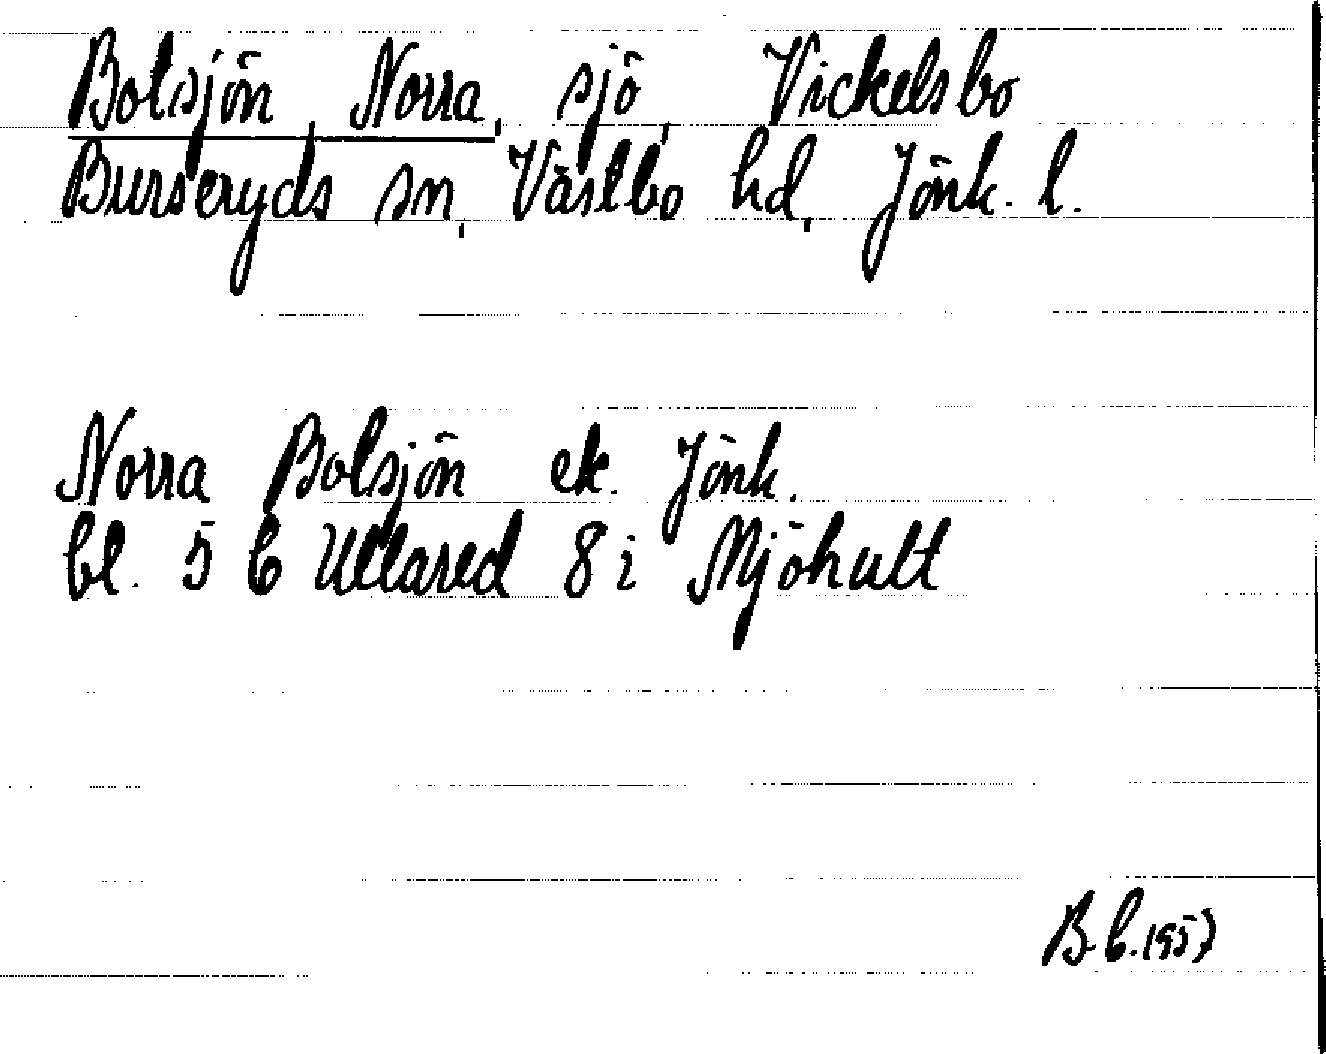 Bolsjön, Norra, sjö, Vickelsbo
Burseryds sn, Västbo hd, Jönk. l.
Norra Bolsjön ek. Jönk.
bl. 5 C Ullared 8 i Mjöhult
B.C. 1957